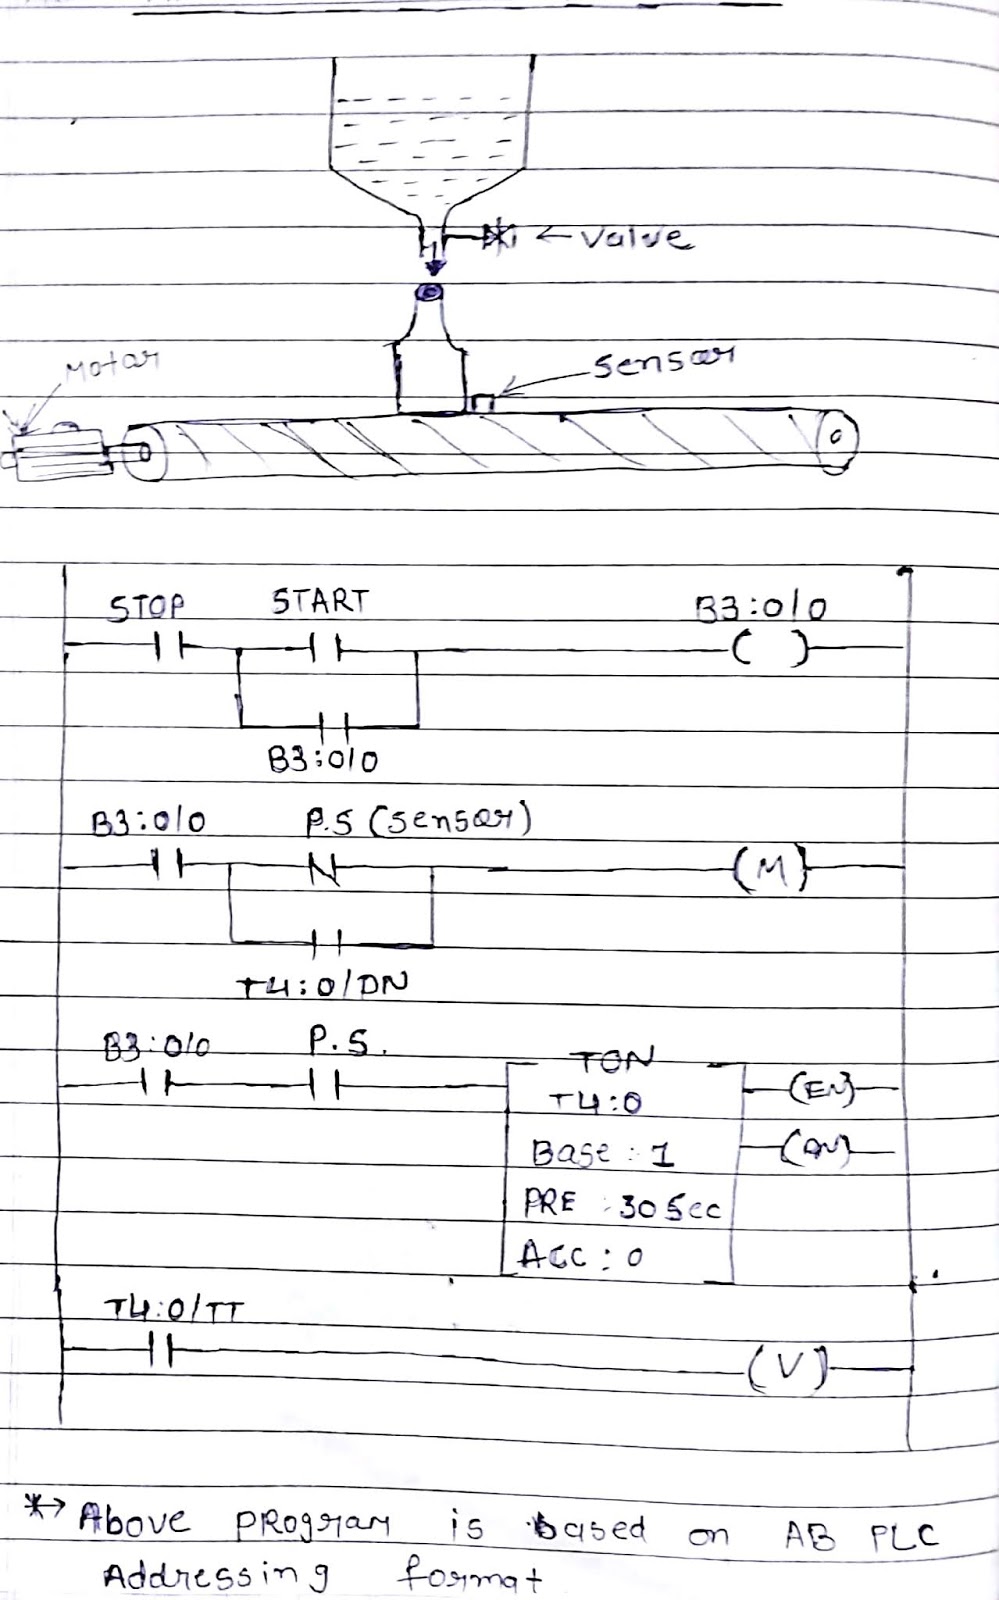 ← Valve
Motor
Sensor
STOP START B3:0/0
B3:0/0
B3:0/0 P.S (Sensor) M
T4:0/DN
B3:0/0 P.S.
TON EN
T4:0
Base : 1 DN
PRE : 30 Sec
ACC : 0
T4:0/TT
V
*→ Above program is based on AB PLC
Addressing format